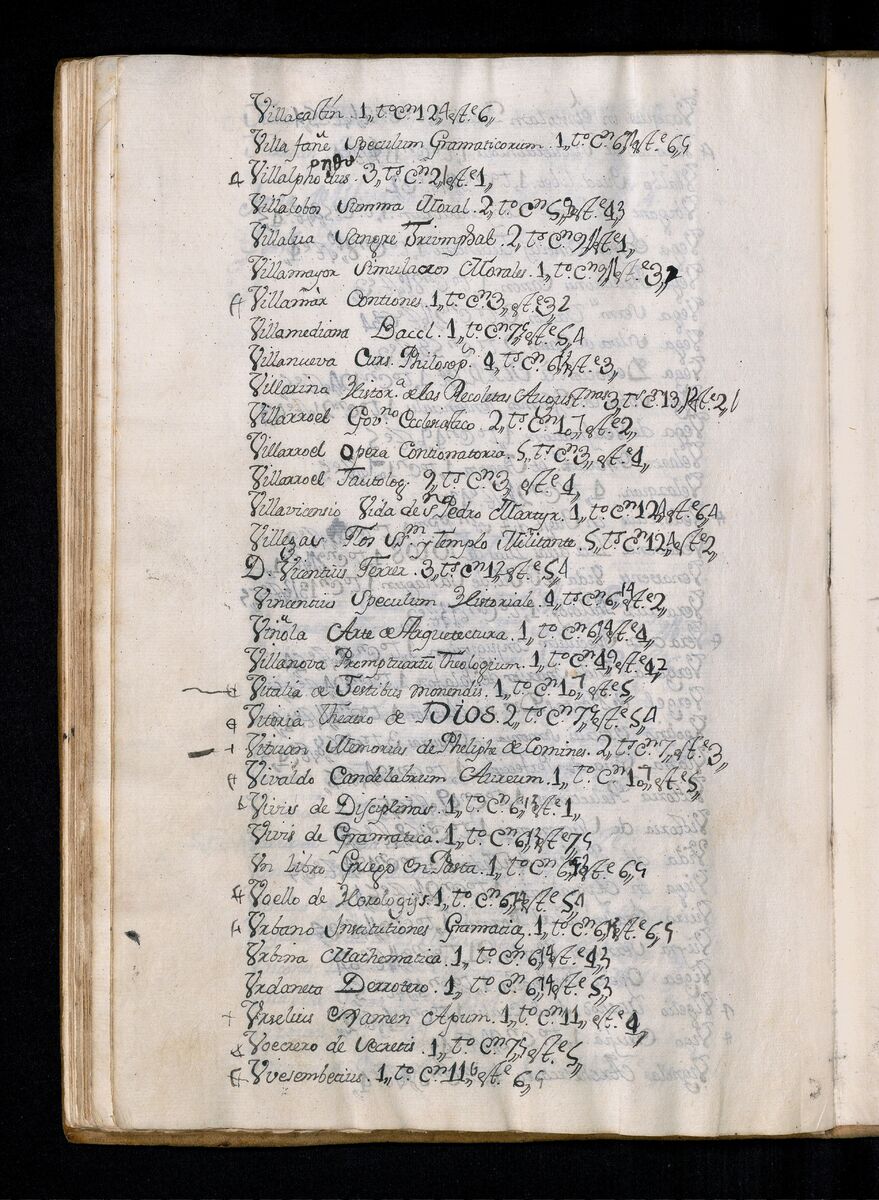 Villacastin. 1,, to. Cn 124 est.e 6,,
Villafañe Speculum Gramaticorum. 1,, to. Cn 6, est.e 6,5
ratho
Villalphodius. 3,, to. Cn 2, est.e 1,,
Villalobos Summa Moral. 2,, to. Cn 5, est.e 4,3
Villalva Sangre Triumphal. 2,, to. Cn 9, est.e 1,,
Villamayor Simulacros Morales. 1,, to. Cn 9, est.e 3,,
Villamar Contiones. 1,, to. Cn 3,, est.e 3,2
Villamediana Baccl. 1,, to. Cn 7, est.e 5,4
Villanueva Curs. Philosop. 4,, to. Cn 6, est.e 3,,
Villarina Histor.a de las Recoletas Augustnas 3,, to. C. 13, est.e 2,
Villarroel Gov.no Ecclesiastco. 2,, to. Cn 10, est.e 2,,
Villarroel Opera Contionatoria. 5,, to. Cn 3,, est.e 4,,
Villarroel Tautolog. 2,, to. Cn 3,, est.e 4,,
Villavicensio Vida de Sn Pedro Martyr. 1,, to. Cn 124 est.e 6,4
Villegas Flos SSm. y Templo Militante. 5,, to. Cn 124 est.e 2,,
D. Vicentius Ferrer. 3,, to. Cn 12, est.e 5,4
Vincentius Speculum Historiale. 4,, to. Cn 6,14 est.e 2,,
Viñola Arte de Arquetectura. 1,, to. Cn 6,14 est.e 4,,
Villanova Promptuariu Theologium. 1,, to. Cn 4, est.e 4,2
Vitalia de Testibus monendis. 1,, to. Cn 10,7 est.e 5,,
Vitoria Theatro de DIOS. 2,, to. Cn 7, est.e 5,4
Vitrian Memorias de Pheliphe de Comines. 2,, to. Cn 7,, est.e 3,,
Vivaldo Candelabrum Aureum. 1,, to. Cn 10,7 est.e 5,,
Vivis de Disciplinas. 1,, to. Cn 6,13 est.e 1,,
Vivis de Gramatica. 1,, to. Cn 6,13 est.e 7,5
Vn Libro Griego en Pasta. 1,, to. Cn 6,13 est.e 6,5
Voello de Horologijs. 1,, to. Cn 6,14 est.e 5,4
Vrbano Institutiones Gramatia. 1,, to. Cn 6, est.e 6,5
Vrbina Mathematica. 1,, to. Cn 6,14 est.e 4,3
Vrdaneta Derrotero. 1,, to. Cn 6,14 est.e 5,3
Vrselius Examen Apum. 1,, to. Cn 11,, est.e 4,,
Voecrero de Secretis. 1,, to. Cn 7, est.e 5,,
Vvesembecius. 1,, to. Cn 11,6 est.e 6,5